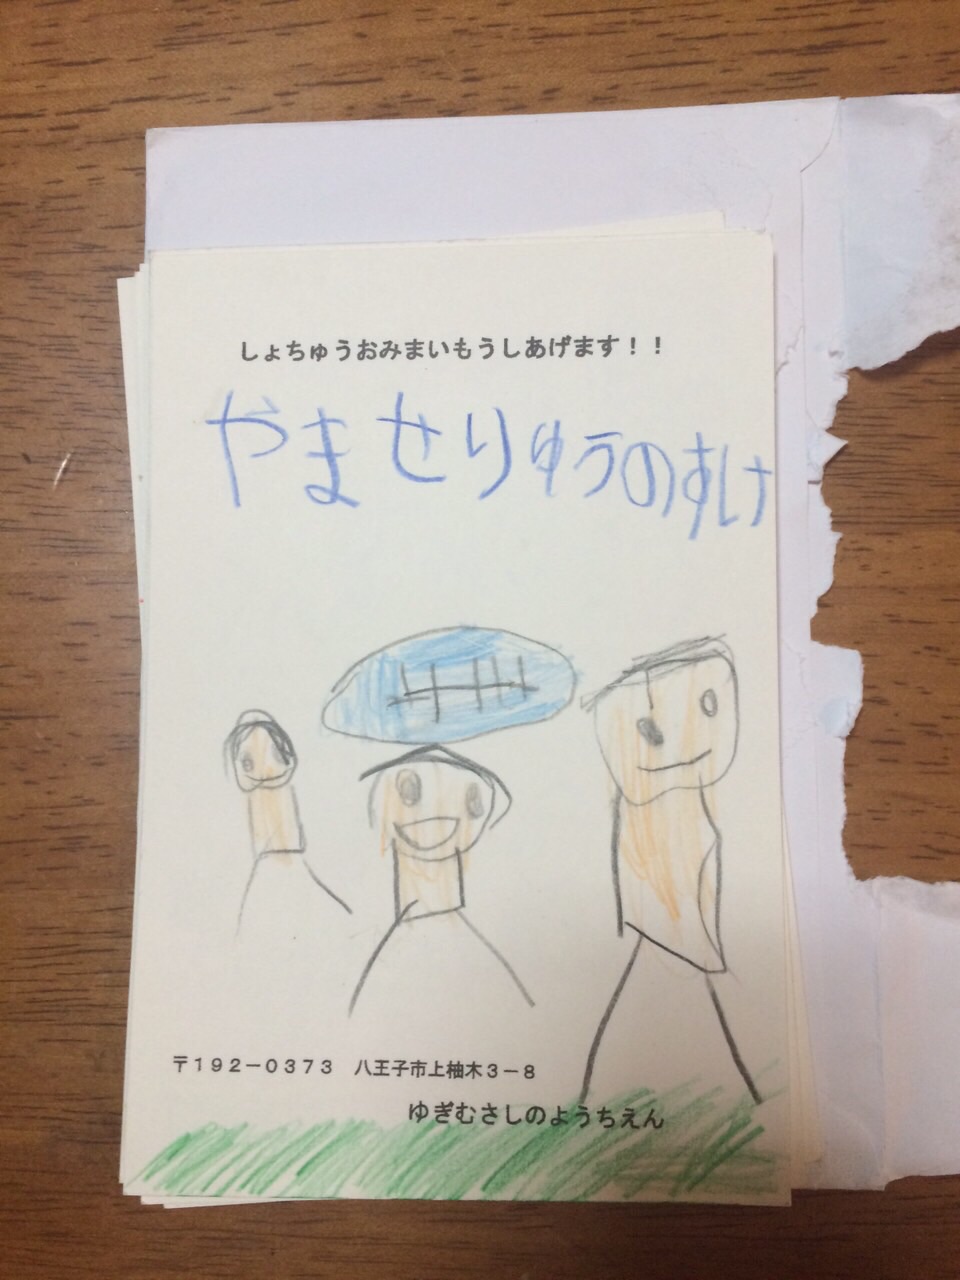 しょちゅうおみまいもうしあげます！！
やませりゅうのすけ
〒１９２－０３７３　八王子市上柚木３－８
ゆぎむさしのようちえん